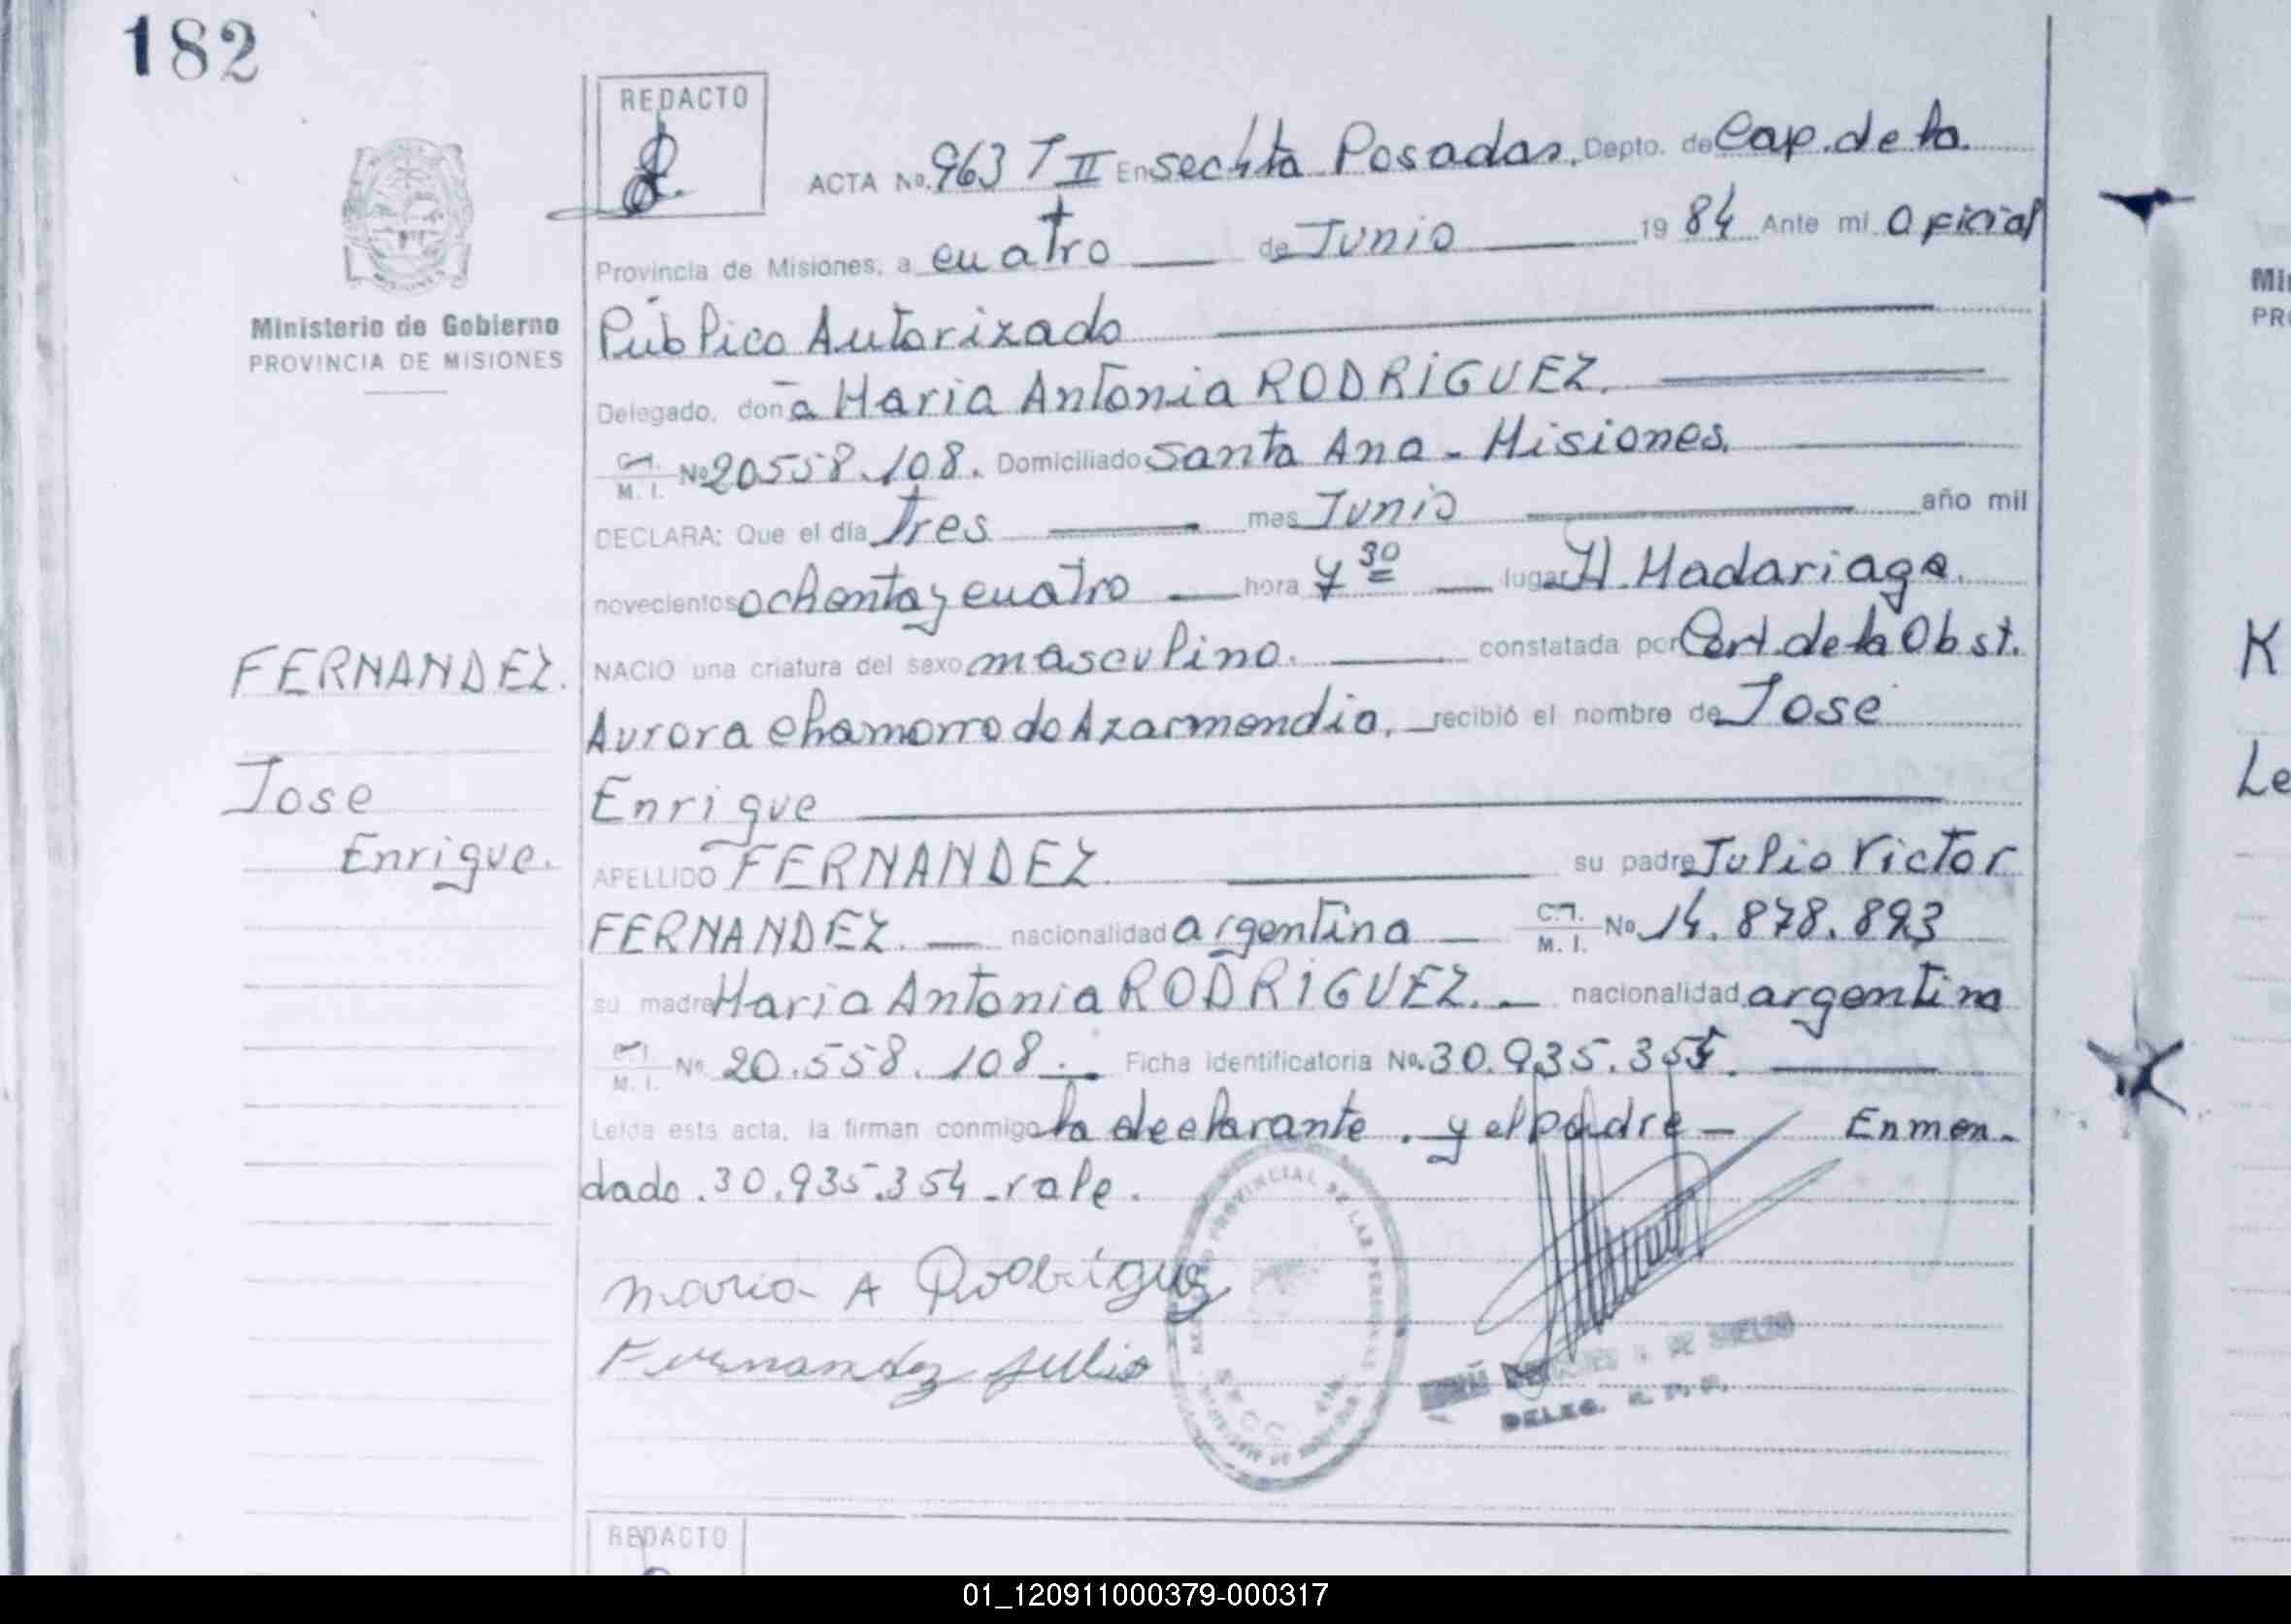 182
REDACTO
ACTA No. 963 T II En sec 4ta Posadas, Depto. de Cap. de la
Provincia de Misiones, a cuatro de Junio 1984 Ante mi Oficial
Ministerio de Gobierno
PROVINCIA DE MISIONES
Público Autorizado
Delegado, doña Maria Antonia RODRIGUEZ.
C.I. M. I. No 20558.108. Domiciliado Santa Ana - Misiones.
DECLARA: Que el día Tres mes Junio año mil
novecientos ochenta y cuatro hora 7 30 lugar H. Madariaga.
FERNANDEZ.
NACIO una criatura del sexo masculino. constatada por Cert. de la Obst.
Aurora Chamorro de Azarmendia, recibió el nombre de Jose
Jose
Enrique
Enrique.
APELLIDO FERNANDEZ su padre Julio Victor
FERNANDEZ. nacionalidad argentina C.I. M. I. No. 14.878.893
su madre Maria Antonia RODRIGUEZ. nacionalidad argentina
C.I. M. I. No. 20.558.108. Ficha identificatoria No. 30.935.354.
Leída esta acta, la firman conmigo la declarante. y el padre - Enmen-
dado. 30.935.354 - vale.
Maria A Rodriguez
Fernandez Julio
PROVINCIAL DE LAS PERSONAS
DELEG. R. P. P.
REDACTO
Mi
PR
K
Le
01_120911000379-000317